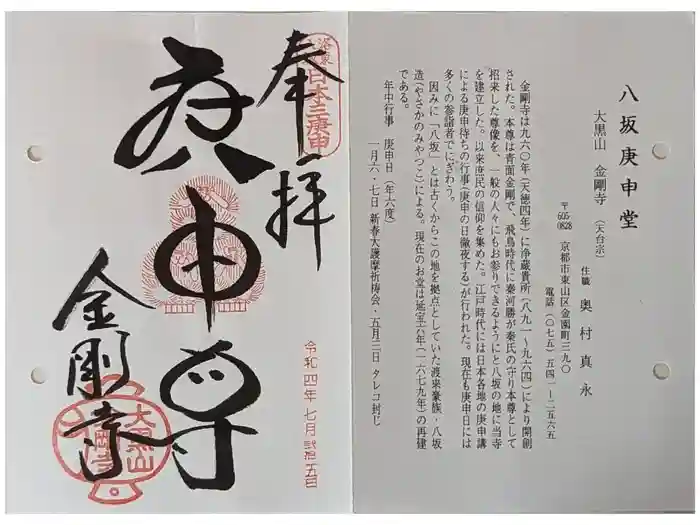 奉拝
洛東
日本三庚申
庚申尊
金剛寺
大黒山
金剛寺
令和四年七月弐拾五日
八坂庚申堂
大黒山 金剛寺 (天台宗)
住職 奥村真永
〒605-0828 京都市東山区金園町三九〇
電話 (〇七五) 五四一〜二五六五
金剛寺は九六〇年(天徳四年)に浄蔵貴所(八九一〜九六四)により開創
された。本尊は青面金剛で、飛鳥時代に秦河勝が秦氏の守り本尊として
招来した尊像を、一般の人々にもお参りできるようにと八坂の地に当寺
を建立した。以来庶民の信仰を集めた。江戸時代には日本各地の庚申講
による庚申待ちの行事(庚申の日徹夜する)が行われた。現在も庚申日には
多くの参詣者でにぎわう。
因みに「八坂」とは古くからこの地を拠点としていた渡来豪族・八坂
造(やさかのみやつこ)による。現在のお堂は延宝六年(一六七九年)の再建
である。
年中行事 庚申日(年六度)
一月六・七日 新春大護摩祈祷会・五月三日 タレコ封じ